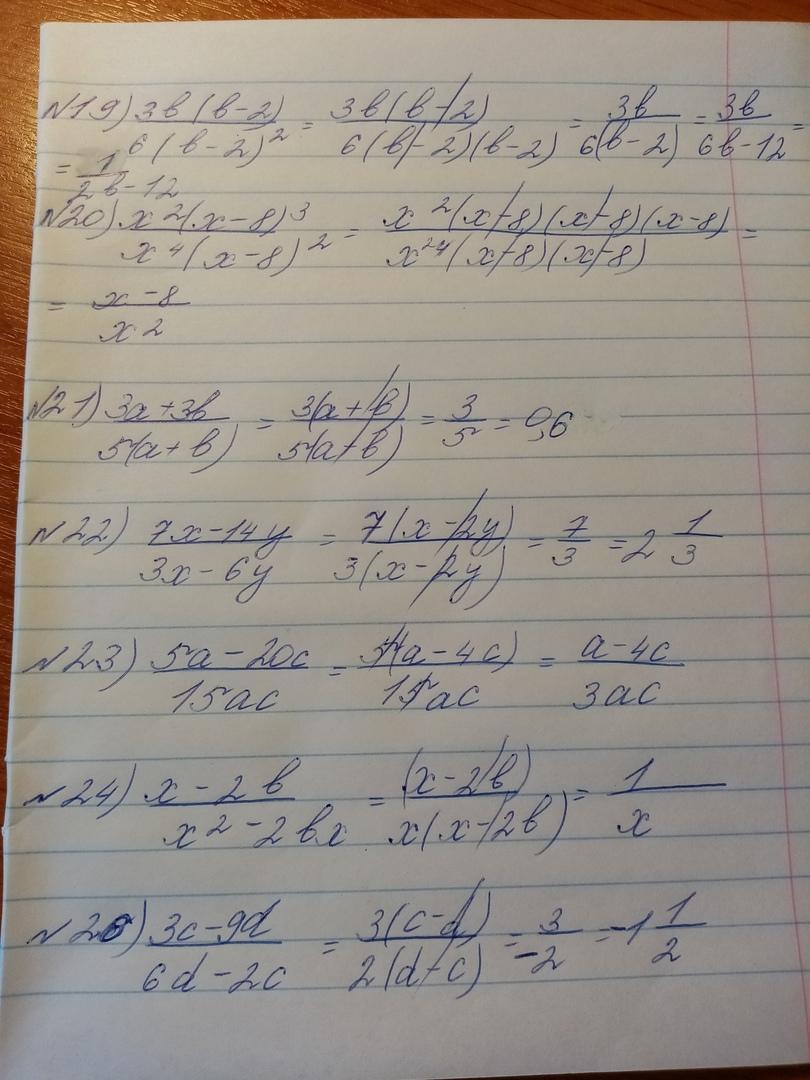 №19) 3в(в-2)/6(в-2)² = 3в(в-2)/6(в-2)(в-2) = 3в/6(в-2) = 3в/6в-12 =
= 1/2в-12
№20) x²(x-8)³/x⁴(x-8)² = x²(x-8)(x-8)(x-8)/x²⁴(x-8)(x-8) =
= x-8/x²
№21) 3a+3в/5(a+в) = 3(a+в)/5(a+в) = 3/5 = 0,6
№22) 7x-14y/3x-6y = 7(x-2y)/3(x-2y) = 7/3 = 2 1/3
№23) 5a-20c/15ac = 5(a-4c)/15ac = a-4c/3ac
№24) x-2в/x²-2вx = (x-2в)/x(x-2в) = 1/x
№26) 3c-9d/6d-2c = 3(c-d)/2(d-c) = 3/-2 = -1 1/2